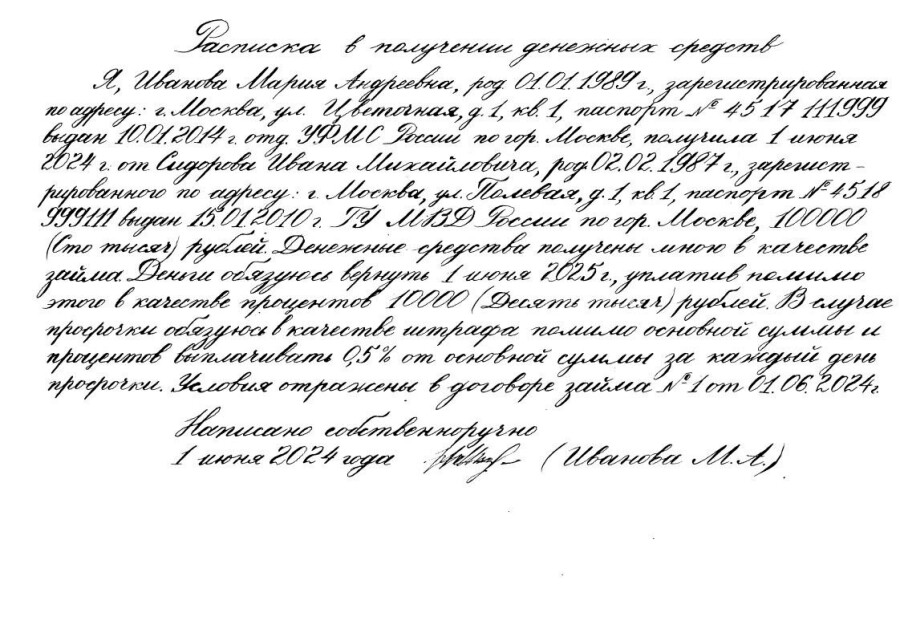 Расписка в получении денежных средств
Я, Иванова Мария Андреевна, род. 01.01.1989 г., зарегистрированная
по адресу: г. Москва, ул. Цветочная, д. 1, кв. 1, паспорт № 4517 111999
выдан 10.01.2014 г. отд. УФМС России по гор. Москве, получила 1 июня
2024 г. от Сидорова Ивана Михайловича, род. 02.02.1987 г., зарегист-
рированного по адресу: г. Москва, ул. Полевая, д. 1, кв. 1, паспорт № 4518
999111 выдан 15.01.2010 г. ГУ МВД России по гор. Москве, 100000
(Сто тысяч) рублей. Денежные средства получены мною в качестве
займа. Деньги обязуюсь вернуть 1 июня 2025 г., уплатив помимо
этого в качестве процентов 10000 (Десять тысяч) рублей. В случае
просрочки обязуюсь в качестве штрафа помимо основной суммы и
процентов выплачивать 0,5% от основной суммы за каждый день
просрочки. Условия отражены в договоре займа № 1 от 01.06.2024 г.
Написано собственноручно
1 июня 2024 года (Иванова М. А.)